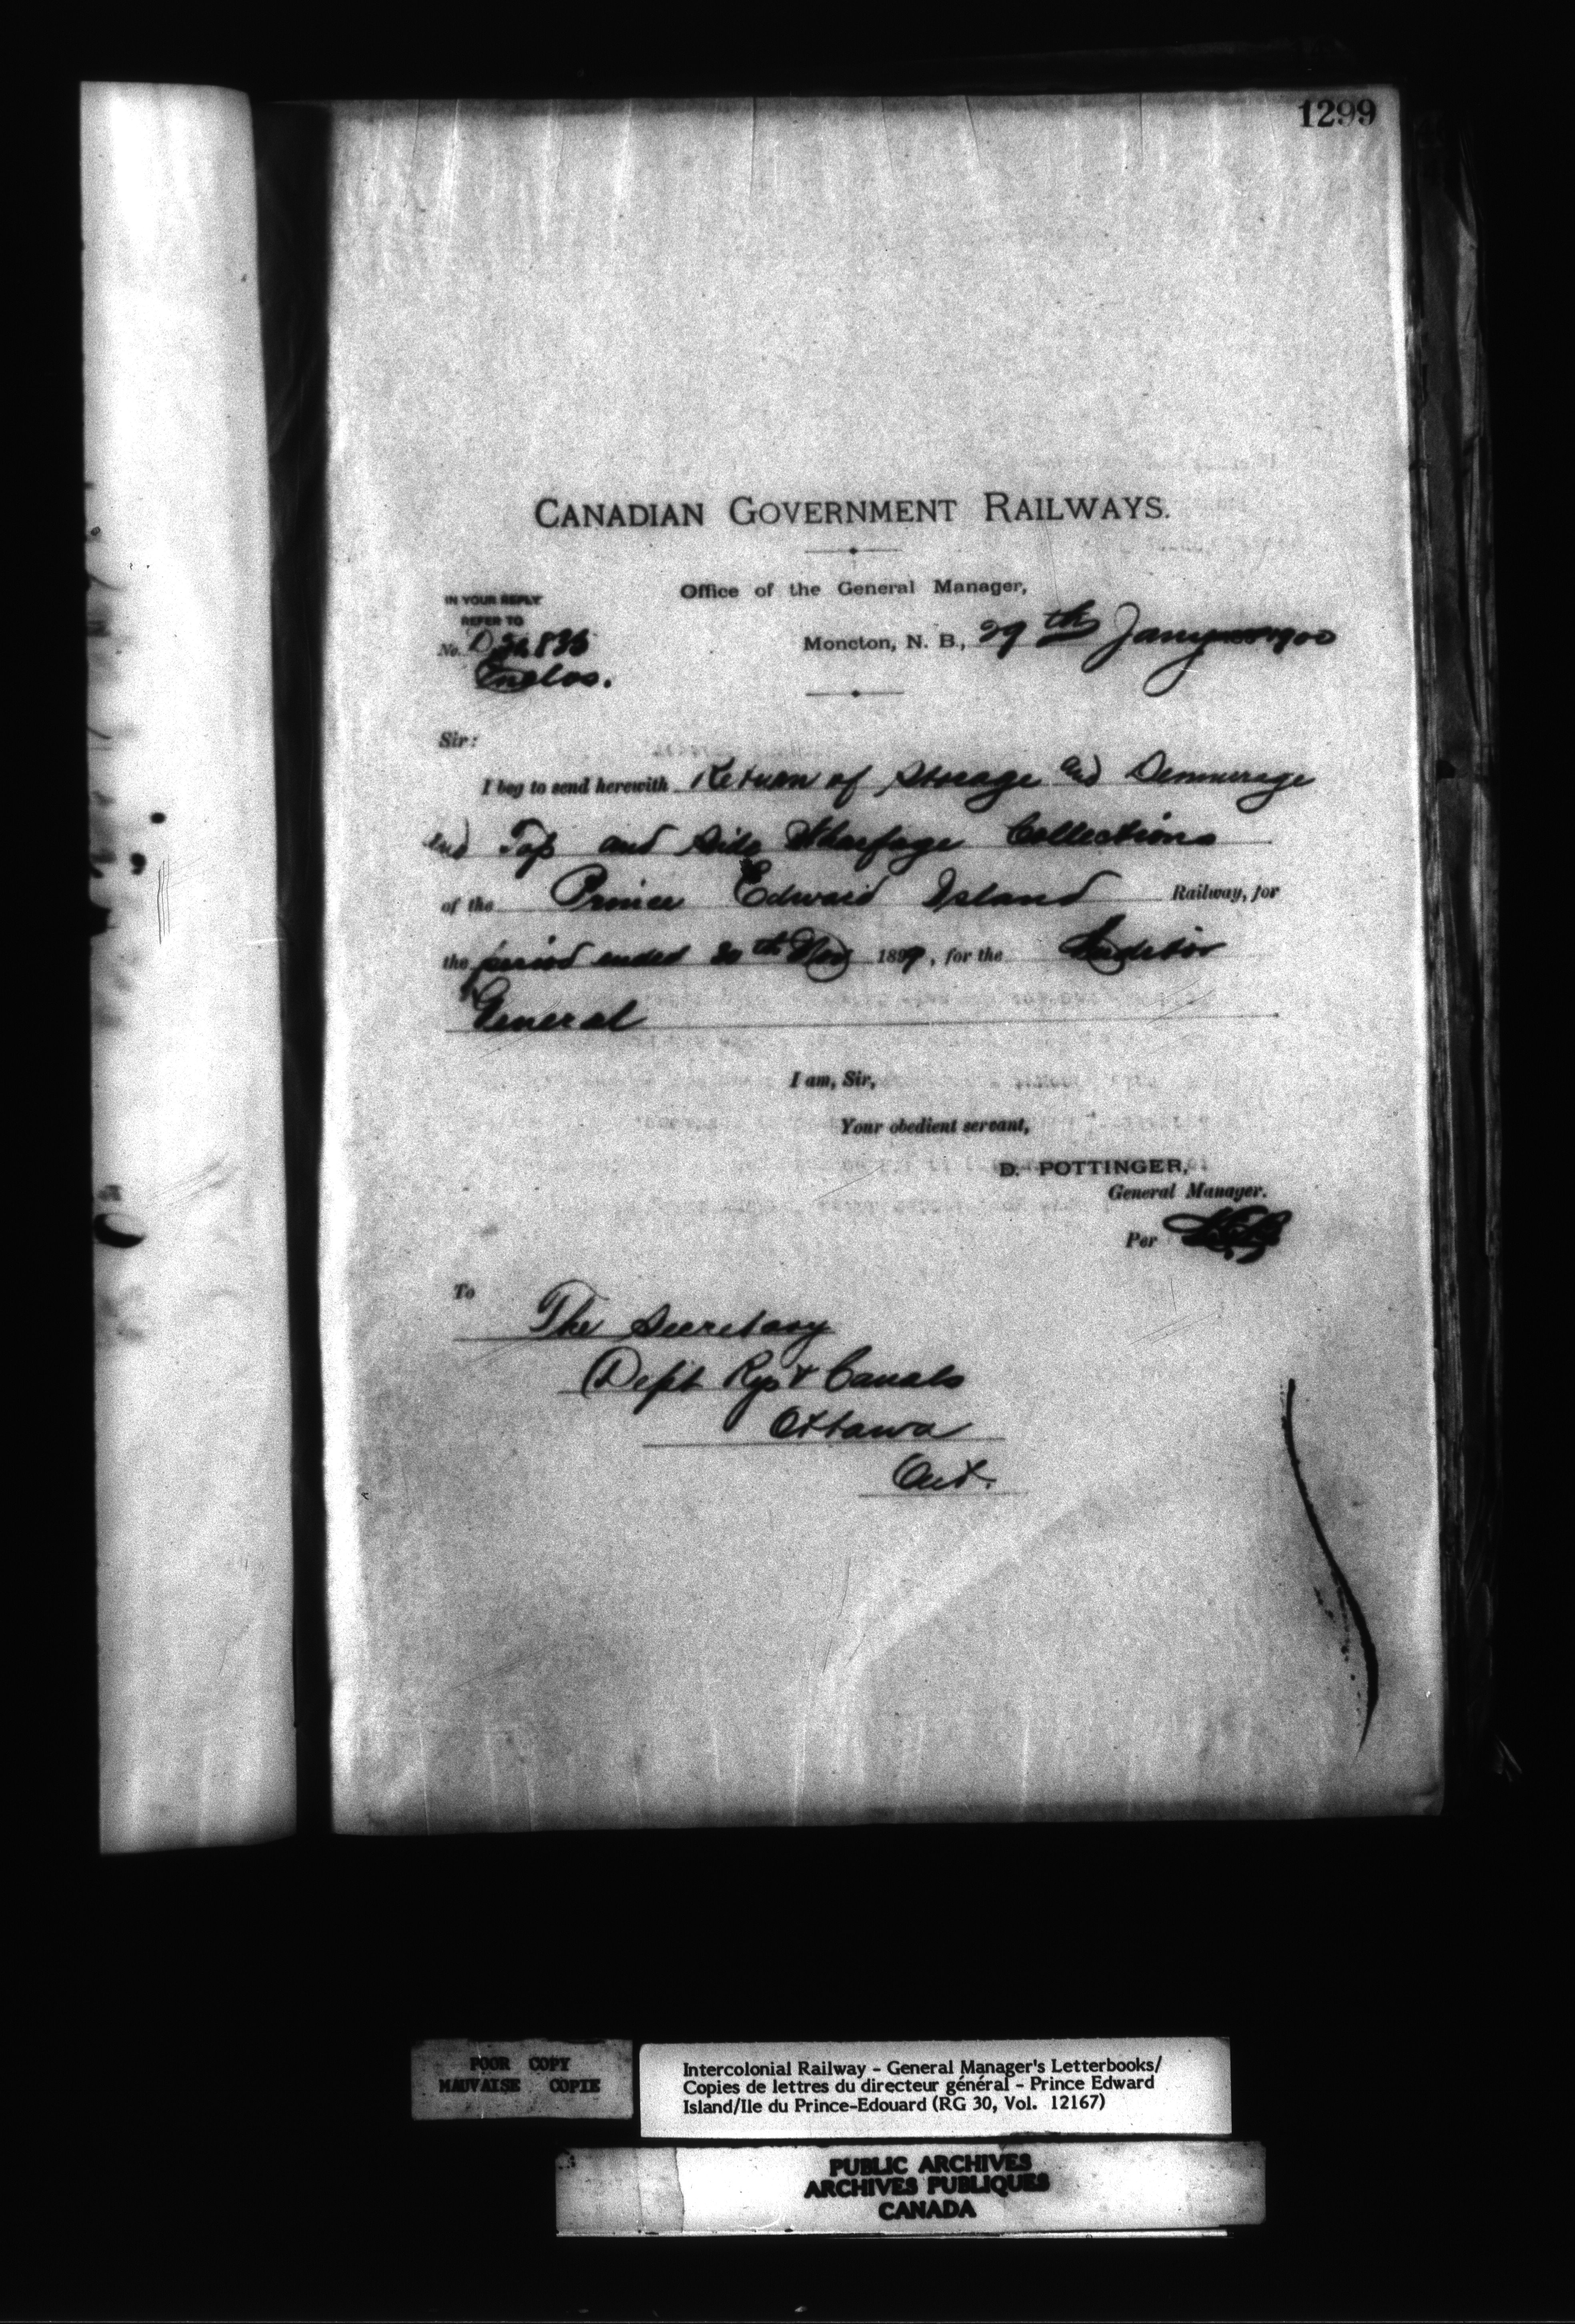 1299
CANADIAN GOVERNMENT RAILWAYS.
Office of the General Manager,
IN YOUR REPLY
REFER TO
No. D
Enclos.
Moncton, N. B., 29th Jany 1900
Sir:
I beg to send herewith Return of Storage and Demurrage
and Top and Side Wharfage Collections
of the Prince Edward Island Railway, for
the period ended 30th Nov 1899, for the Auditor
General
I am, Sir,
Your obedient servant,
D. POTTINGER,
General Manager.
Per
To
The Secretary
Dept Rys & Canals
Ottawa
Ont.
POOR COPY
MAUVAISE COPIE
Intercolonial Railway - General Manager's Letterbooks/
Copies de lettres du directeur général - Prince Edward
Island/Ile du Prince-Edouard (RG 30, Vol. 12167)
PUBLIC ARCHIVES
ARCHIVES PUBLIQUES
CANADA